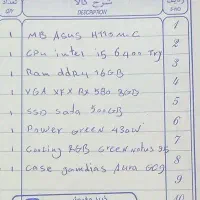 شرح کالا
DESCRIPTION
1 MB Asus H110M-C 1
1 CPU intel i5 6400 Try 2
1 Ram DDR4 16GB 3
1 VGA XFX RX 580 8GD 4
1 SSD Sata 500GB 5
1 Power Green 430W 6
1 Cooling RGB Green notus 7
1 Case gamdias Aura GC2 8
9
10